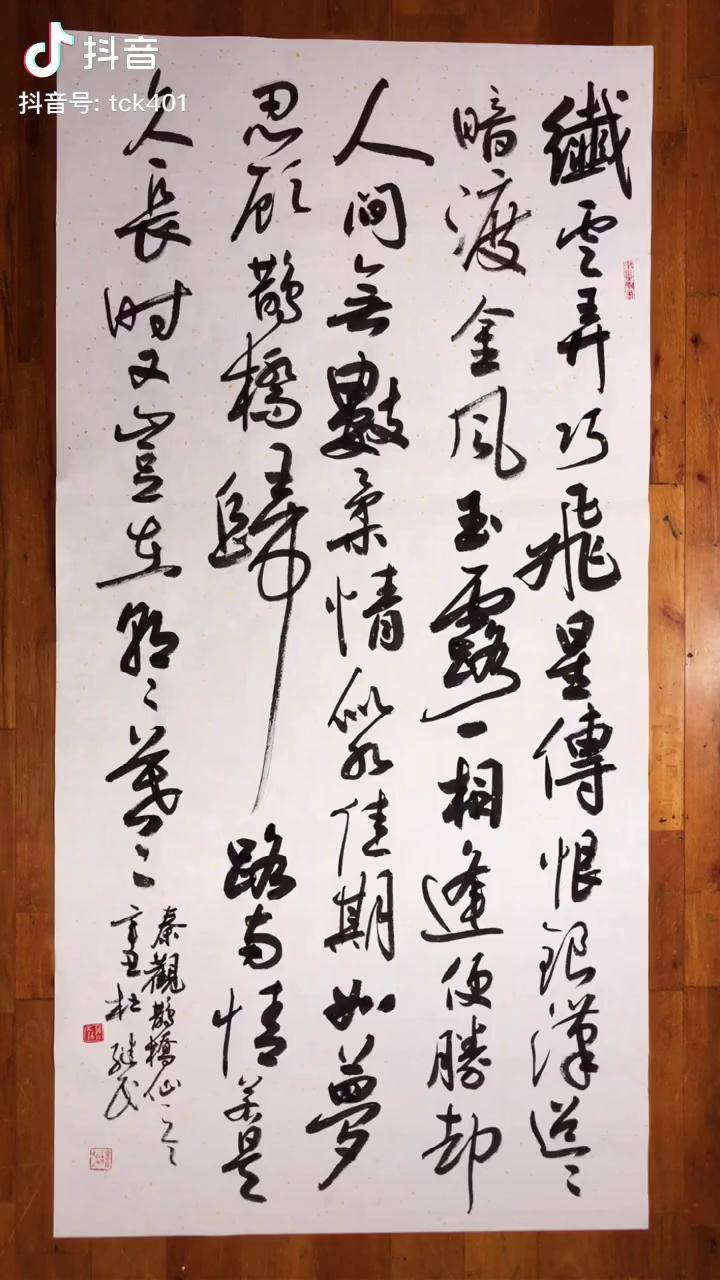 抖音
抖音号: tck401
纖雲弄巧飛星傳恨銀漢迢〻
暗渡金風玉露一相逢便勝却
人間無數柔情似水佳期如夢
忍顧鵲橋歸路兩情若是
久長时又豈在朝〻暮〻
秦觀鵲橋仙
辛丑杜继民